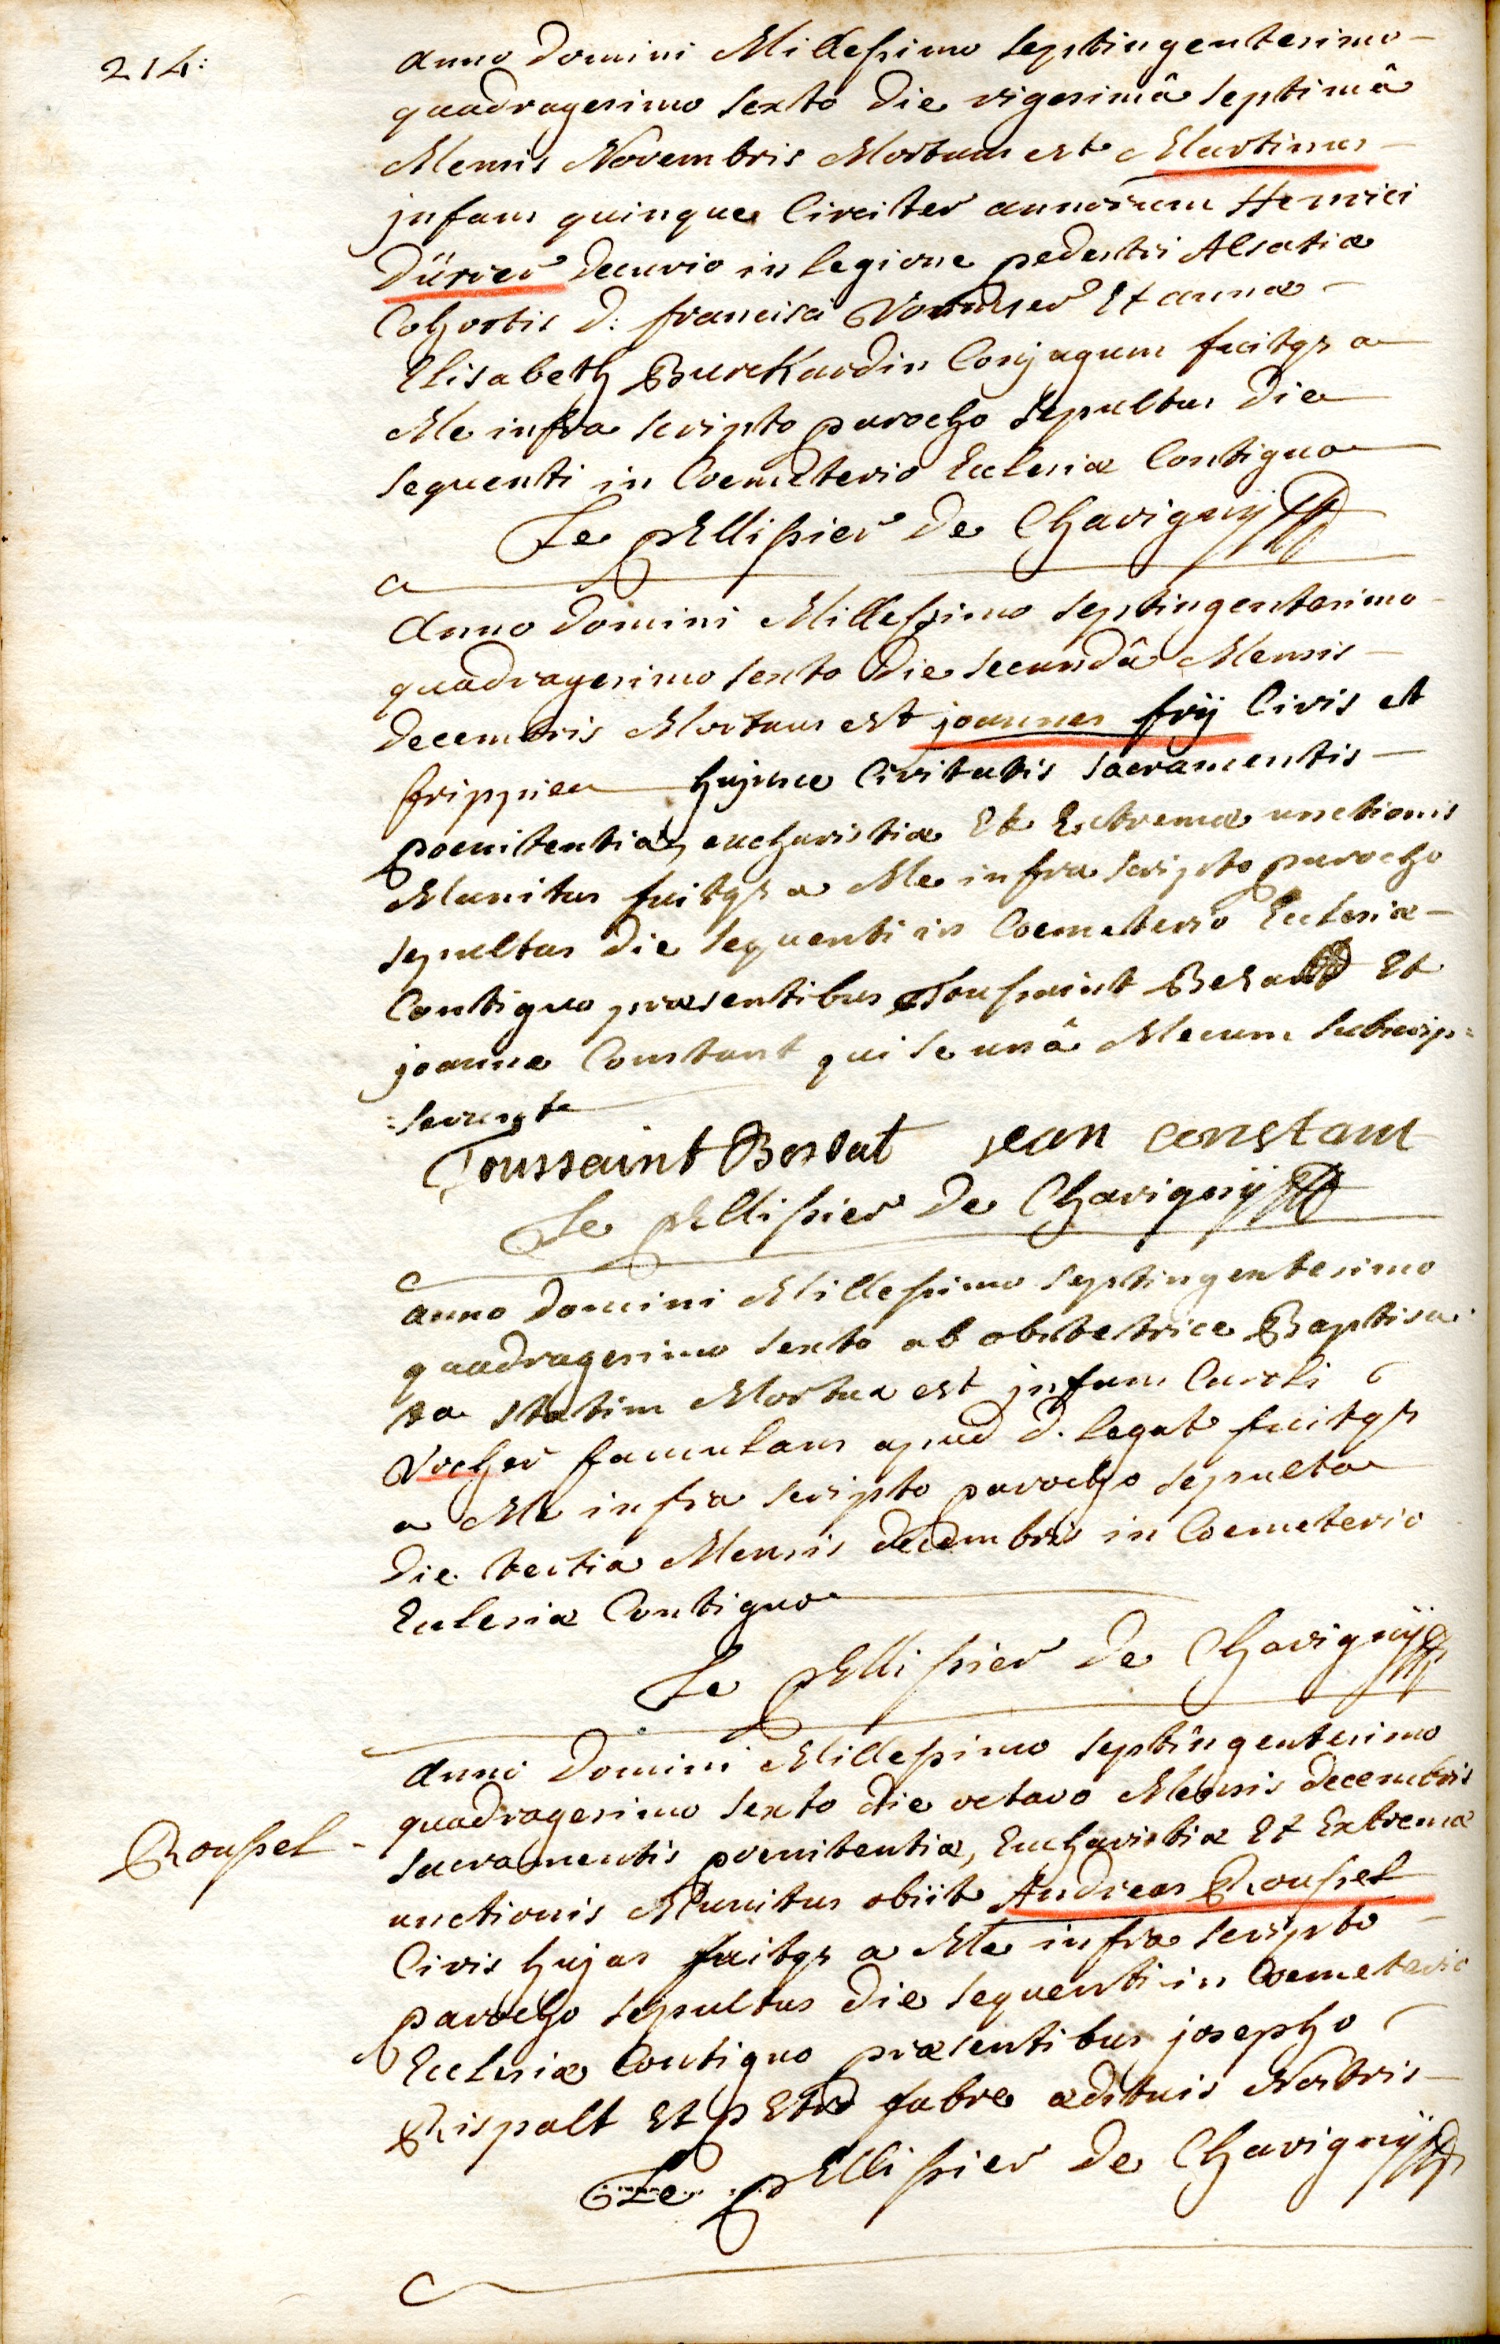 214:
anno Domini Millessimo septingentesimo
quadragesimo sexto die vigesimâ septimâ
Mensis Novembris Mortuus est Martinus
jnfans quinque Circiter annorum Henrici
Dürrer Decurio in legione pedestri Alsatiæ
Cohortis D: francisci et annæ
Elisabeth Burckardin Conjugum fuitqz a
Me infra scripto parocho sepultus die
sequenti in Coemeterio Ecclesiæ Contiguo
Le pellissier De Chavigny
Anno Domini Millessimo septingentesimo
quadragesimo sexto Die secundâ Mensis
Decembris Mortuus est joannes frij Civis et
frippier hujusce Civitatis sacramentis
poenitentiæ, eucharistiæ Et Extremæ unctionis
Munitus fuitqz a Me infra scripto parocho
sepultus die sequenti in Coemeterio Ecclesiæ
Contiguo præsentibus Toussaint Et
joanne Constant qui se unâ Mecum subscrip=
=serunt
Toussaint Bossat jean constant
Le pellissier De Chavigny
anno Domini Millessimo septingentesimo
quadragesimo sexto ab obstetrice Baptisa
ta statim Mortua est jnfans Caroli
Vocher famulans apud D. legat fuitqz
a Me infra scripto parocho sepulta
Die tertia Mensis decembris in Coemeterio
Ecclesiæ Contiguo
Le pellissier De Chavigny
Anno Domini Millessimo septingentesimo
quadragesimo sexto die octavo Mensis decembris
Roussel
sacramentis poenitentiæ, Eucharistiæ Et Extremæ
unctionis Munitus obiit Andreas Roussel
Civis hujas fuitqz a Me infra scripto
parocho sepultus die sequenti in Coemeterio
Ecclesiæ Contiguo præsentibus josepho
Rispalt Et petro fabre ædituis Nostris
Le pellissier De Chavigny